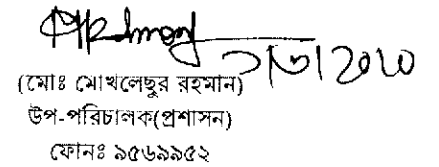 (মোঃ মোখলেছুর রহমান)
উপ-পরিচালক(প্রশাসন)
ফোনঃ ৯৫৬৯৯৫২